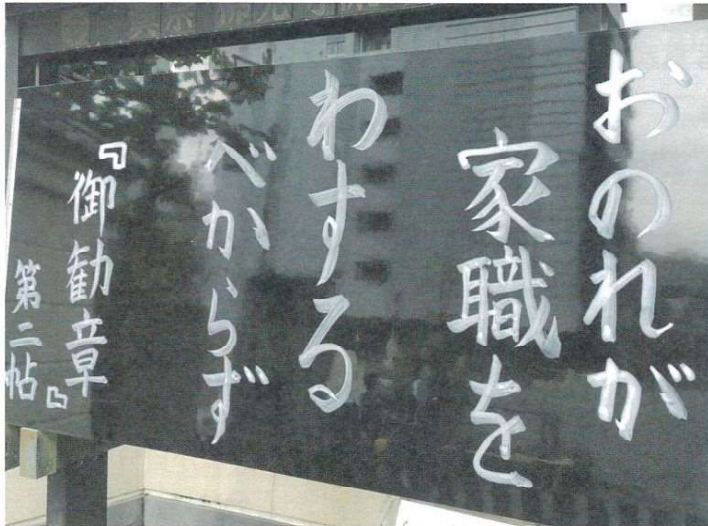 おのれが
家職を
わする
べからず
『御勧章』
第二帖